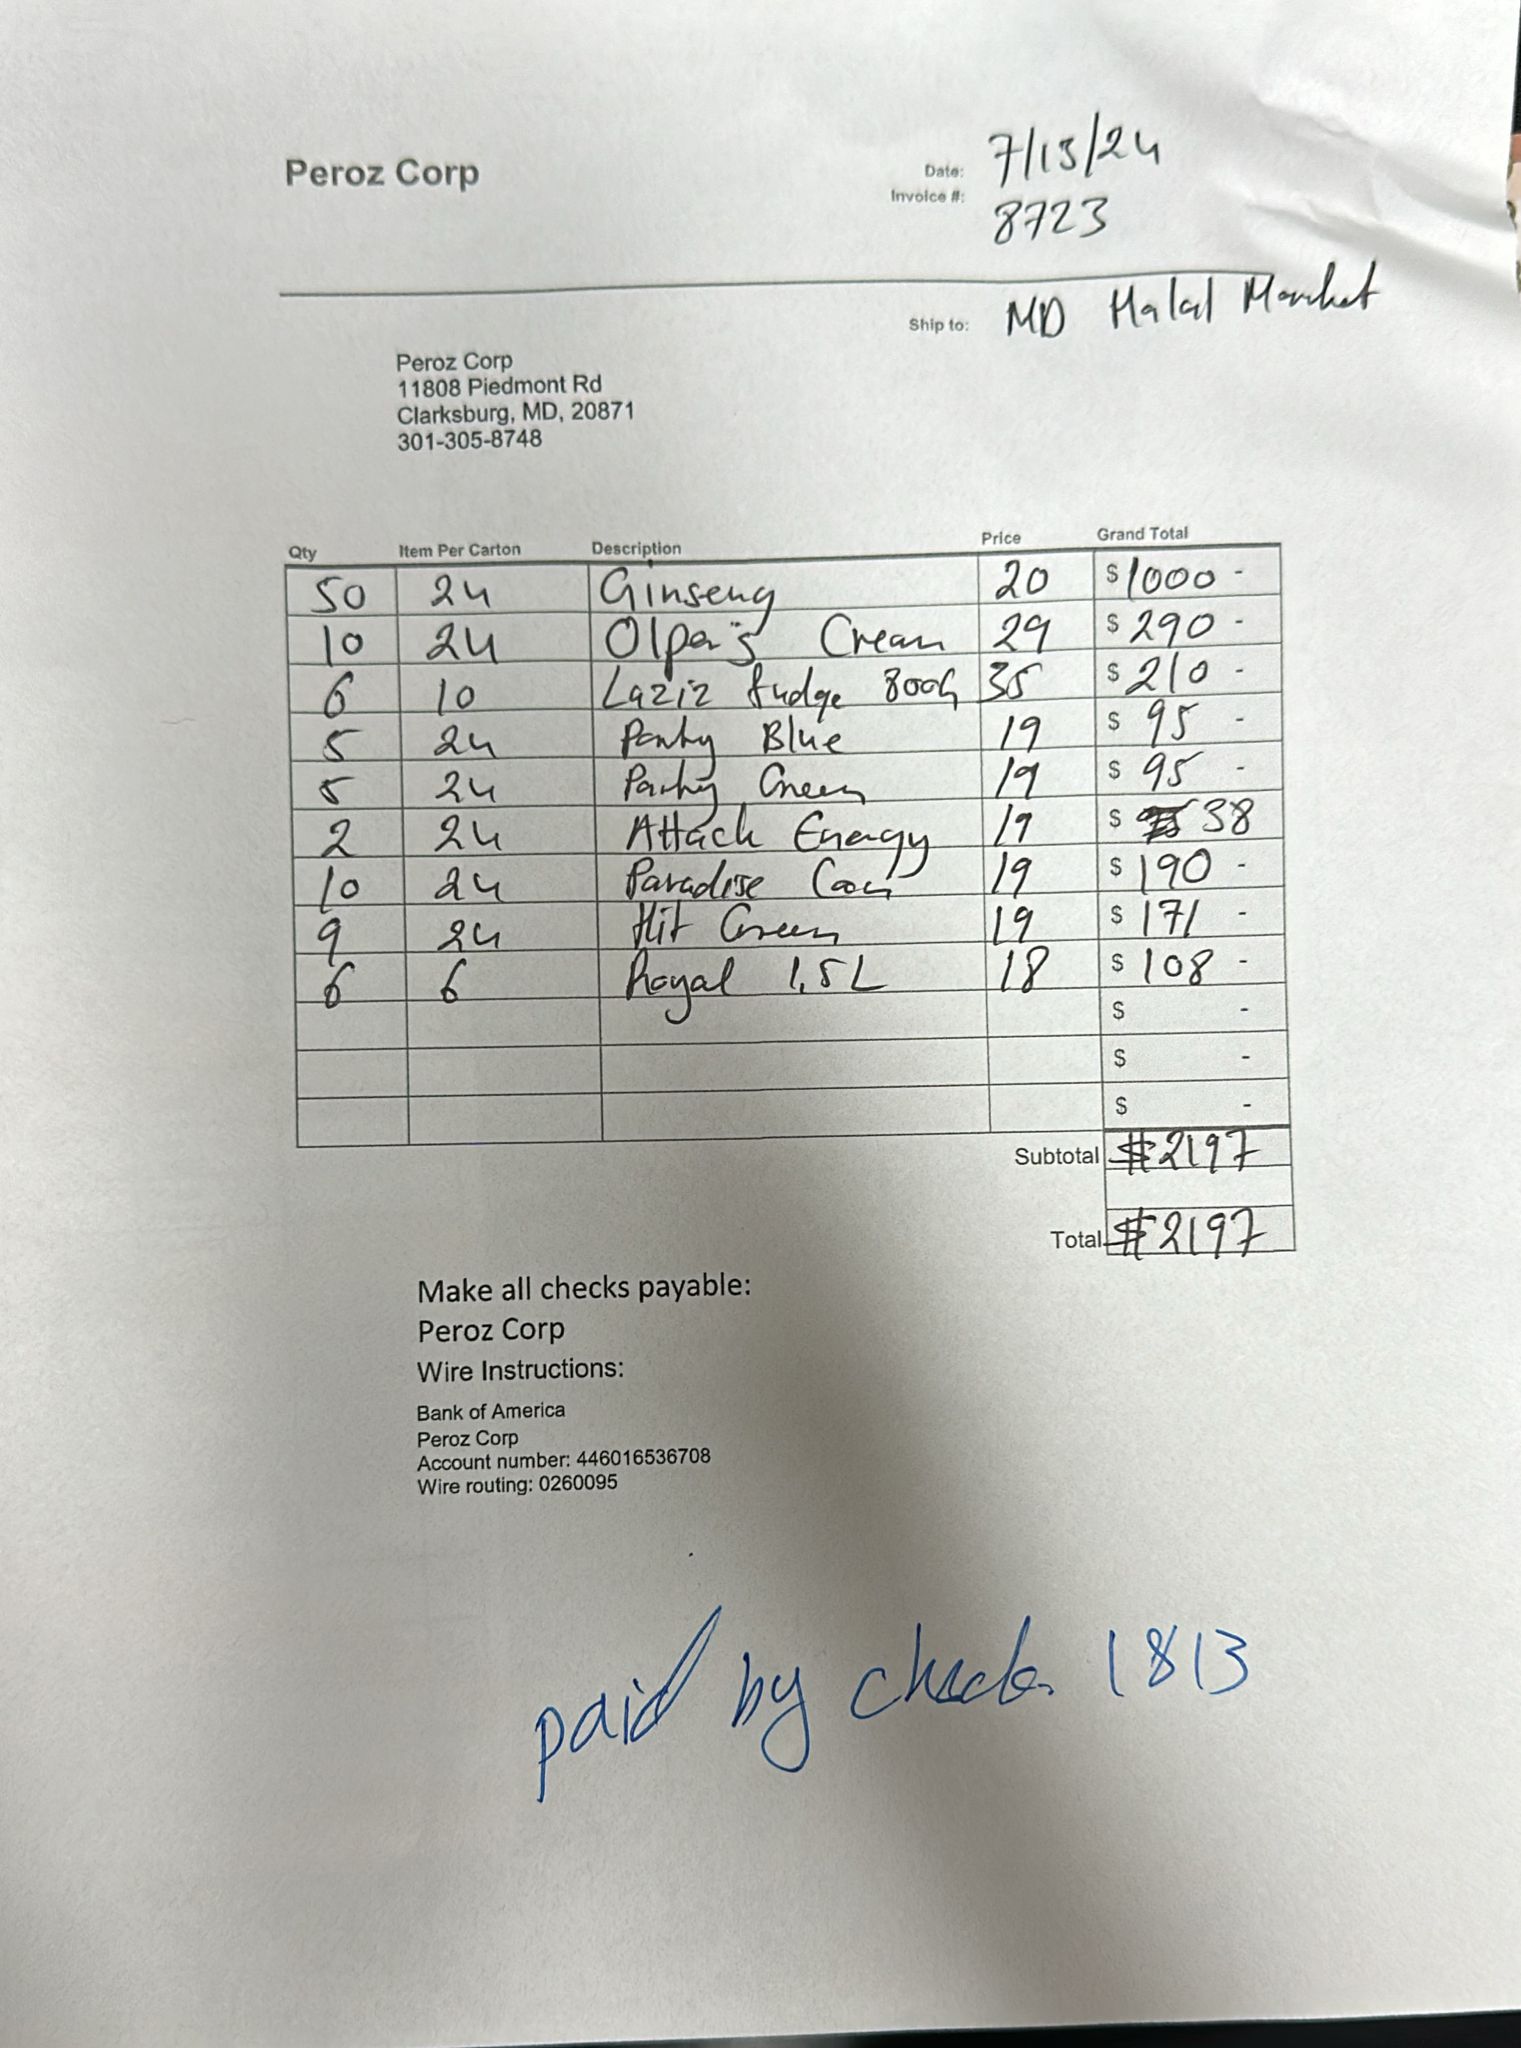 Peroz Corp
Date: 7/15/24
Invoice #: 8723
Ship to: MD Halal Market
Peroz Corp
11808 Piedmont Rd
Clarksburg, MD, 20871
301-305-8748
Qty Item Per Carton Description Price Grand Total
50 24 Ginseng 20 $ 1000 -
10 24 Olper's Cream 29 $ 290 -
6 10 Laziz fudge 800G 35 $ 210 -
5 24 Party Blue 19 $ 95 -
5 24 Party Green 19 $ 95 -
2 24 Attack Energy 19 $ 38
10 24 Paradise 19 $ 190 -
9 24 Hit Green 19 $ 171 -
6 6 Royal 1.5L 18 $ 108 -
$ -
$ -
$ -
Subtotal $2197
Total $2197
Make all checks payable:
Peroz Corp
Wire Instructions:
Bank of America
Peroz Corp
Account number: 446016536708
Wire routing: 0260095
paid by check. 1813